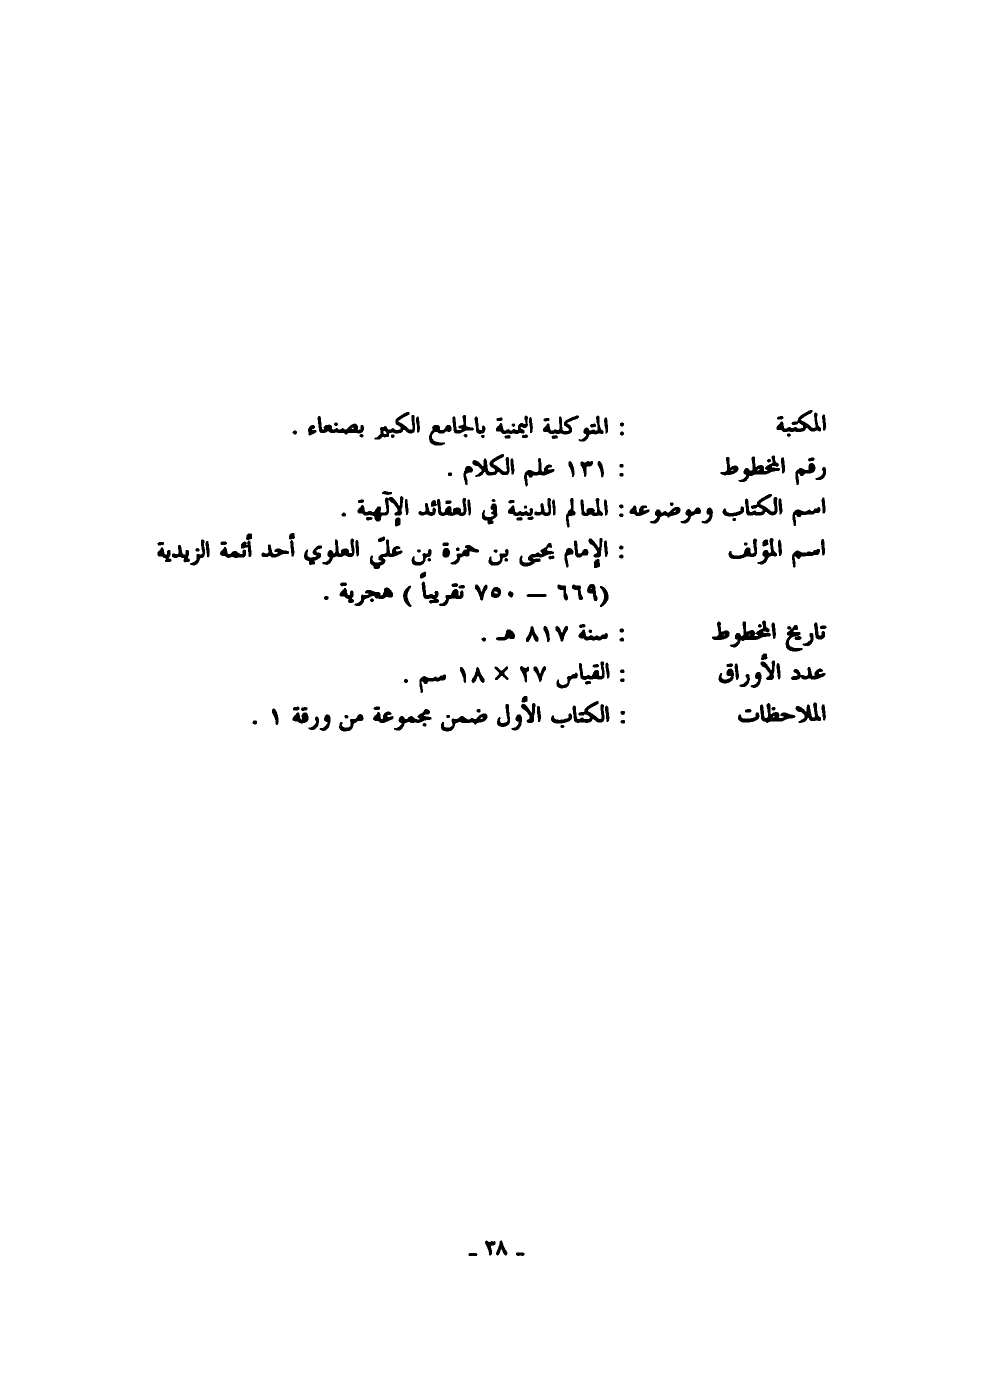 المكتبة : المتوكلية اليمنية بالجامع الكبير بصنعاء .
رقم المخطوط : ١٣١ علم الكلام .
اسم الكتاب وموضوعه : المعالم الدينية في العقائد الإلٓهية .
اسم المؤلف : الإمام يحيى بن حمزة بن عليّ العلوي أحد أئمة الزيدية
(٦٦٩ — ٧٥٠ تقريباً ) هجرية .
تاريخ المخطوط : سنة ٨١٧ هـ .
عدد الأوراق : القياس ٢٧ × ١٨ سم .
الملاحظات : الكتاب الأول ضمن مجموعة من ورقة ١ .
ـ ٣٨ ـ